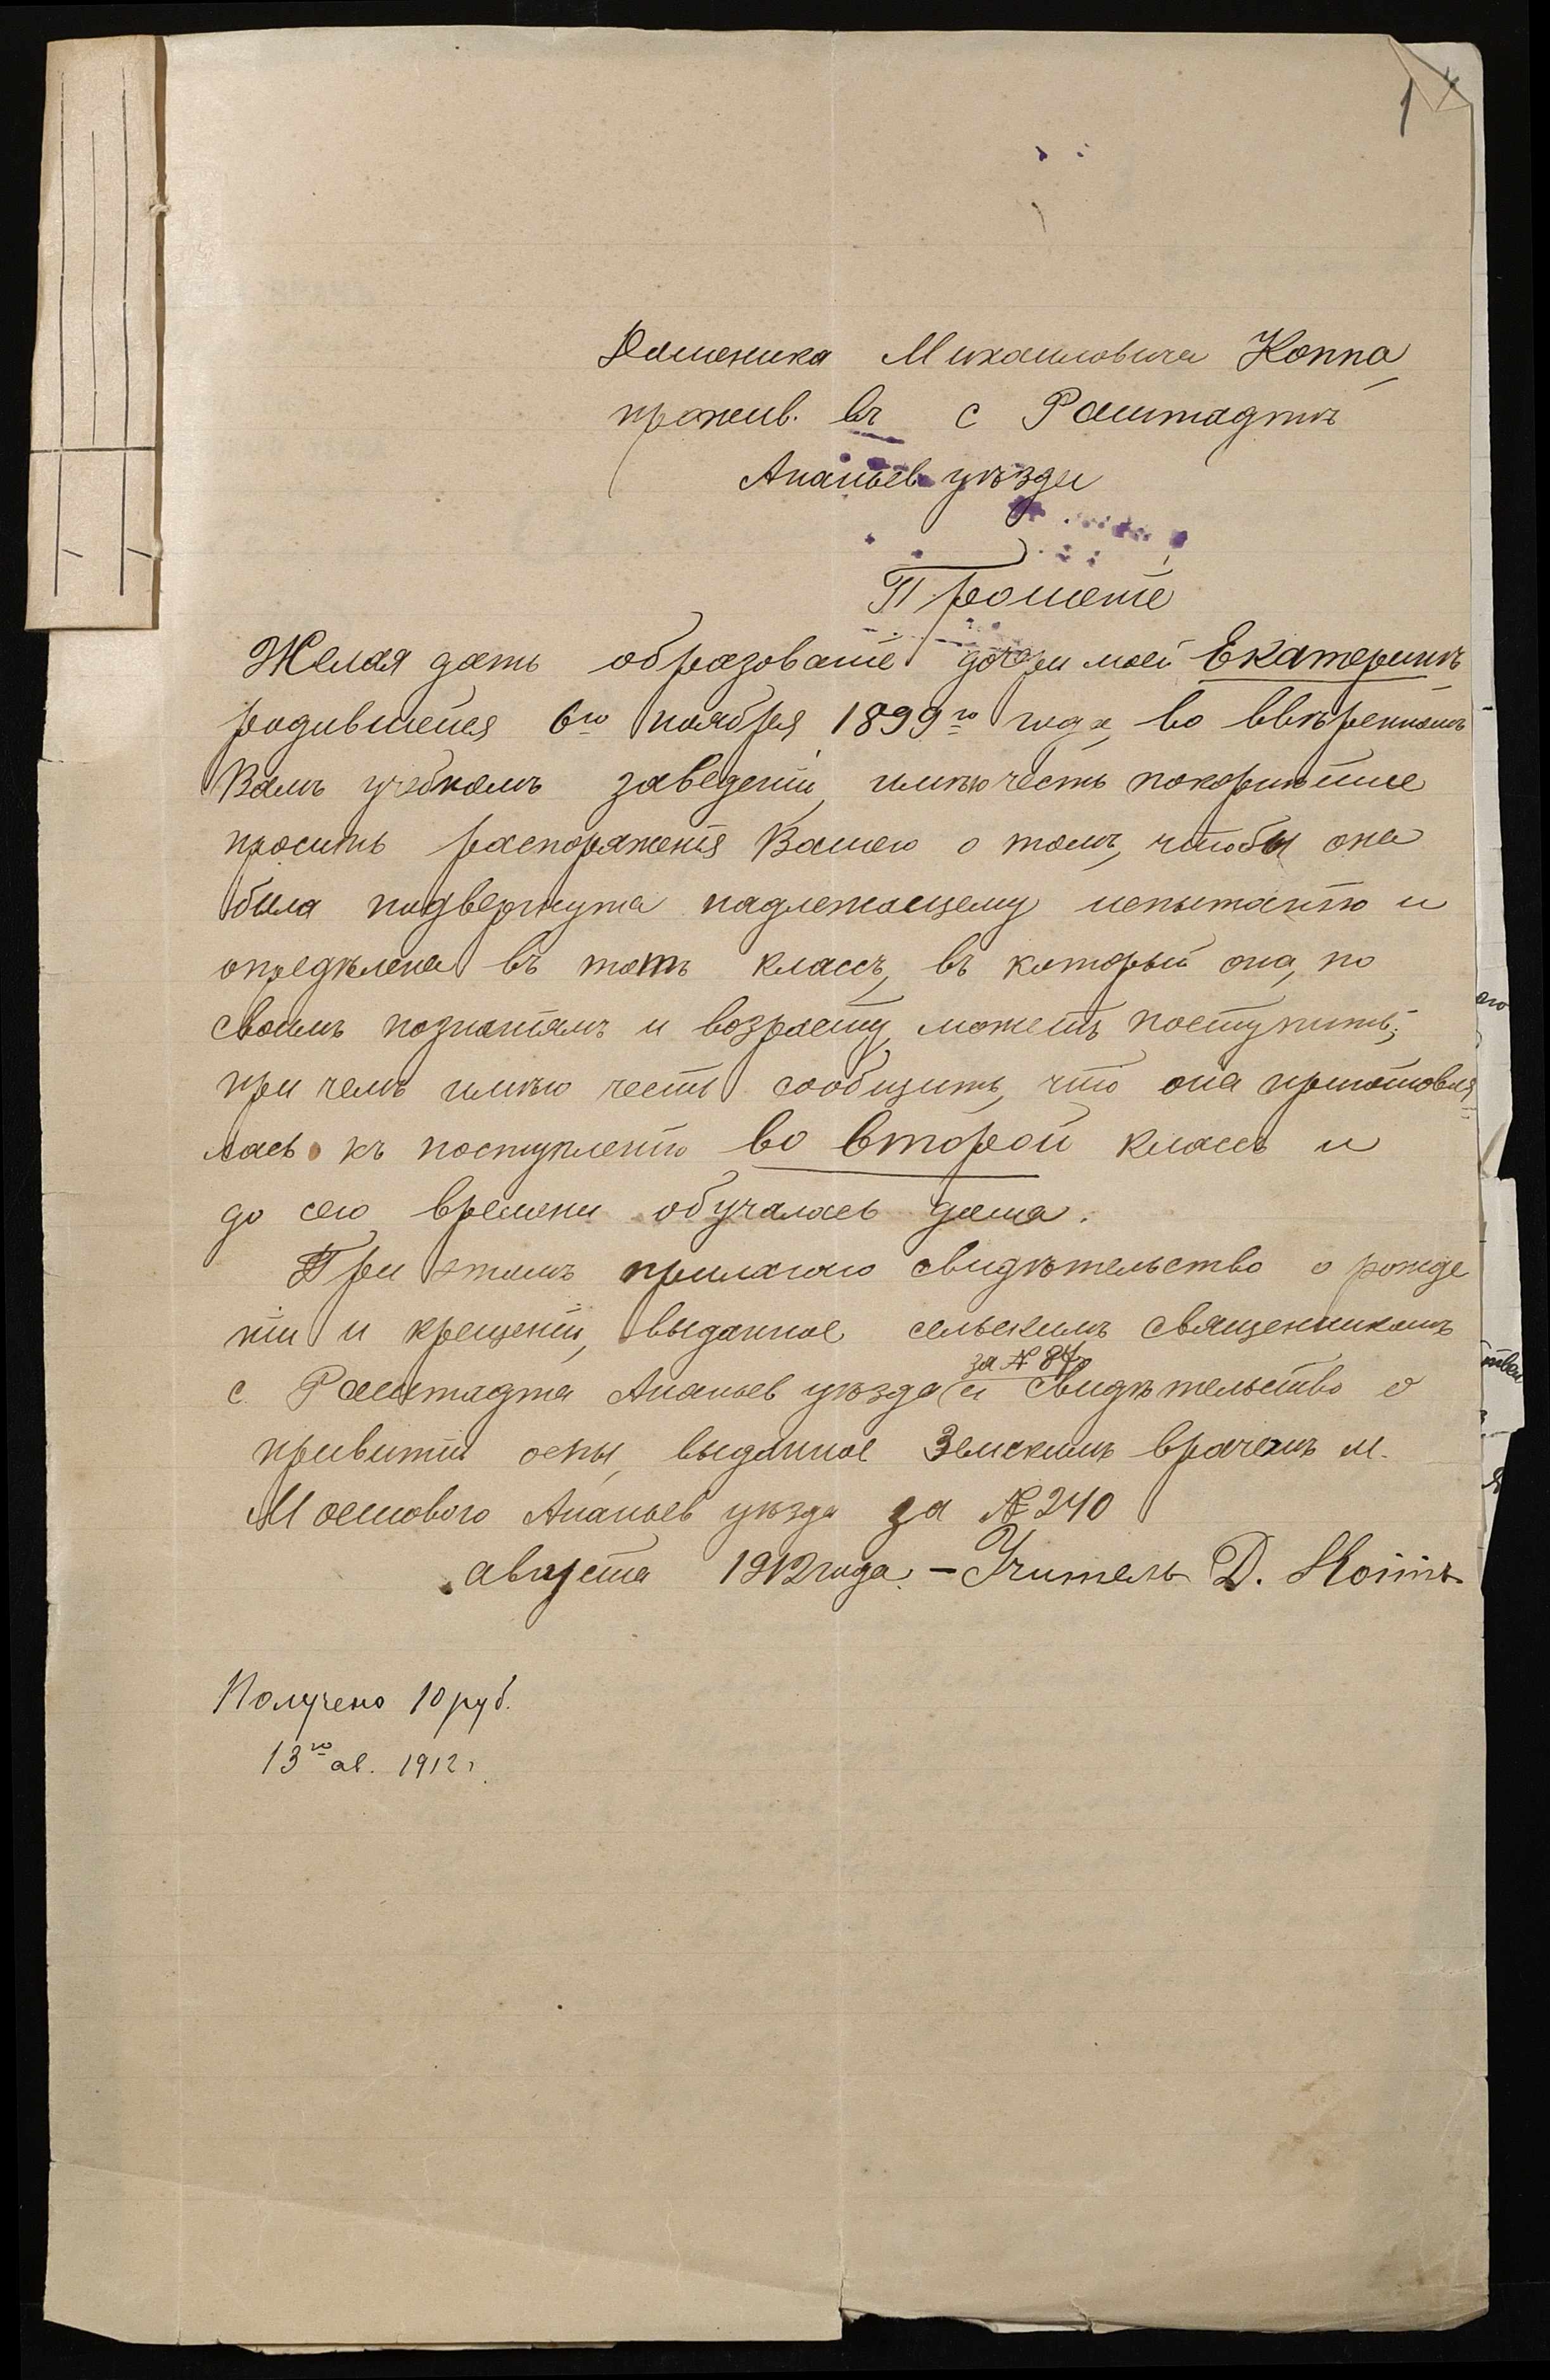 1
Доменика Михаиловича Коппа
прожив. въ с Раштадтъ
Ананьев уѣзда
Прошеніе
Желая дать образованіе дочери моей Екатеринѣ
родившейся 6го ноября 1899го года, во ввѣренномъ
Вамъ учебномъ заведеніи, имѣю честь покорнѣйше
просить распоряженія Вашего о томъ, чтобы она
была подвергнута надлежащему испытанію и
опредѣлена въ тотъ классъ, въ который она, по
своимъ познаніямъ и возрасту, можетъ поступить;
при чемъ имѣю честь сообщить, что она приготовля=
лась къ поступленію во второй классъ и
до сего времени обучалась дома.
При этомъ прилагаю свидѣтельство о рожде
ніи и крещеніи, выданное сельскимъ священникомъ
за №
с. Раштадта Ананьев уѣзда и свидѣтельство о
привитіи оспы, выданное Земскимъ врачемъ м.
Мостового Ананьев уѣзда за № 240
августа 1912 года. – Учитель Д. Коппъ
Получено 10 руб.
13го ав. 1912 г.